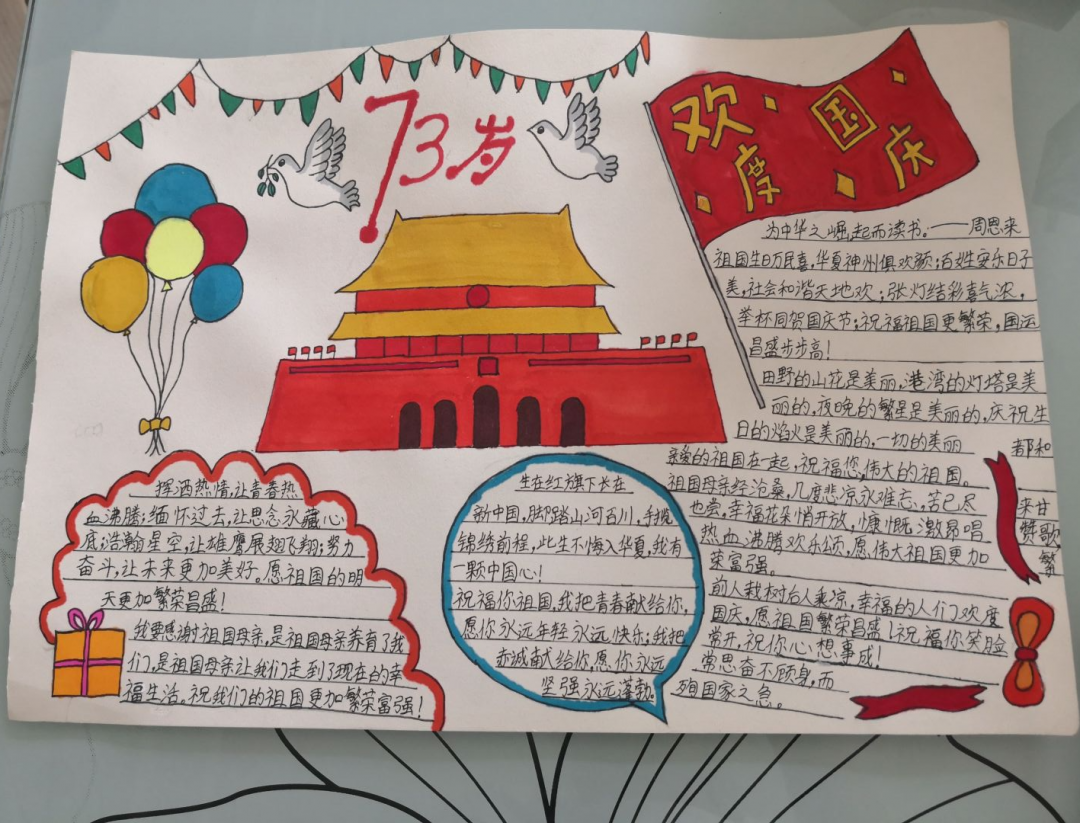 73岁
欢度
国庆
为中华之崛起而读书。——周恩来
祖国生日万民喜,华夏神州俱欢颜;百姓安乐日子
美,社会和谐天地欢;张灯结彩喜气浓,
举杯同贺国庆节;祝福祖国更繁荣,国运
昌盛步步高!
田野的山花是美丽,港湾的灯塔是美
丽的,夜晚的繁星是美丽的,庆祝生
日的焰火是美丽的,一切的美丽 都和
亲爱的祖国在一起,祝福您,伟大的祖国。
祖国母亲经沧桑,几度悲凉永难忘,苦已尽 来甘
也尝,幸福花朵悄开放,慷慨激昂唱 赞歌
热血沸腾欢乐颂,愿伟大祖国更加 繁
荣富强。
前人栽树后人乘凉,幸福的人们欢度
国庆,愿祖国繁荣昌盛!祝福你笑脸
常开,祝你心想事成!
常思奋不顾身,而
殉国家之急。
挥洒热情,让青春热
血沸腾;缅怀过去,让思念永藏心
底;浩瀚星空,让雄鹰展翅飞翔;努力
奋斗,让未来更加美好。愿祖国的明
天更加繁荣昌盛!
我要感谢祖国母亲,是祖国母亲养育了我
们,是祖国母亲让我们走到了现在的幸
福生活。祝我们的祖国更加繁荣富强!
生在红旗下长在
新中国,脚踏山河百川,手揽
锦绣前程,此生不悔入华夏,我有
一颗中国心!
祝福你祖国,我把青春献给你,
愿你永远年轻永远快乐;我把
赤诚献给你,愿你永远
坚强永远蓬勃。